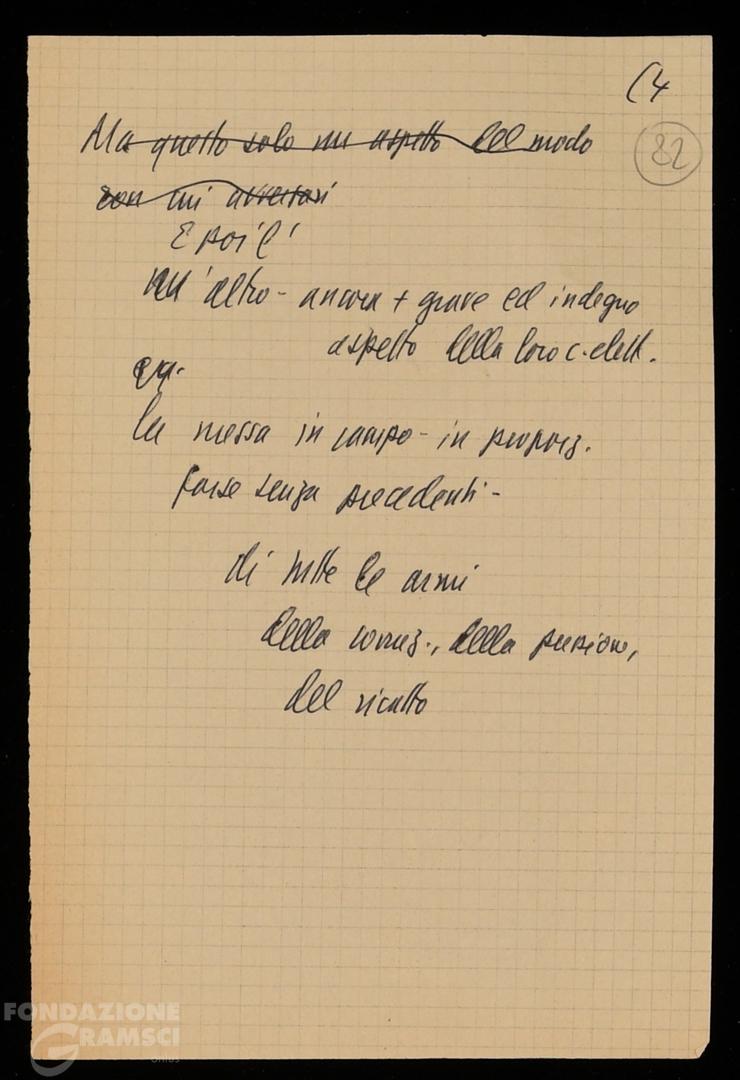 (4
82
Ma questo solo un aspetto del modo
con cui avversari
E poi c'
un'altro - ancora + grave ed indegno
aspetto della loro c. elett.
la messa in campo - in proporz.
forse senza precedenti -
di tutte le armi
della corruz., della pressione,
del ricatto
FONDAZIONE
GRAMSCI
onlus